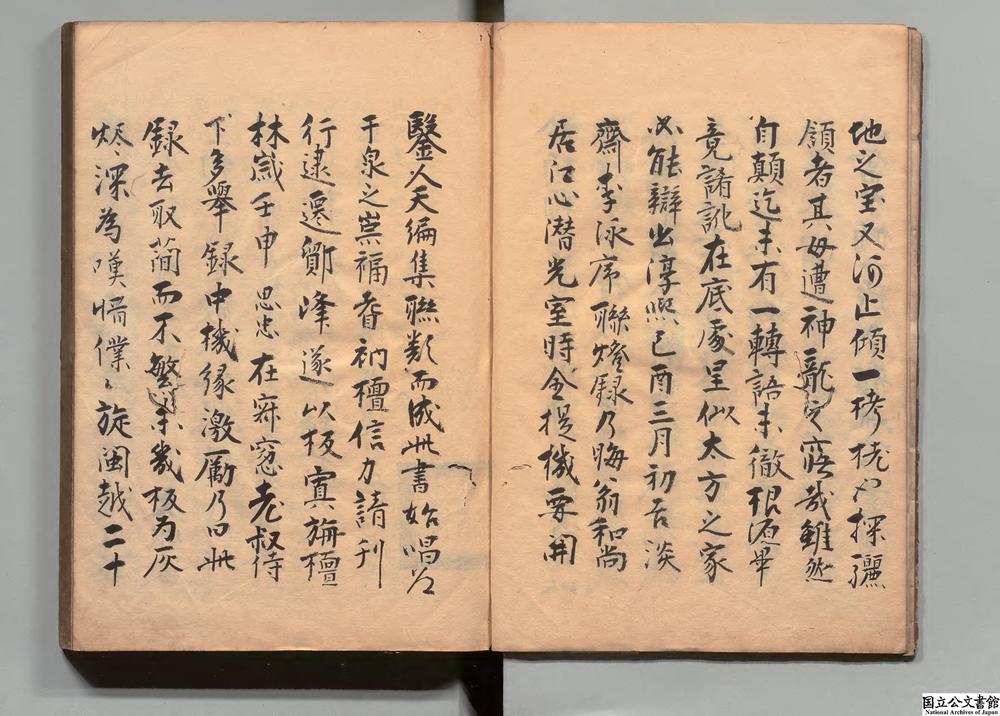 地之宝又何止傾一栲栳也探驪
頷者其毋遭神龍之寤哉雖然
自顛迄末有一轉語未徹根源畢
竟誵訛在底處呈似太方之家
必能辯出淳煕己酉三月初吉淡
齋李泳序聯燈録乃晦翁和尚
居江心潜光室時全提機要開
鑿人天編集聯類而成此書始唱道
于泉之崇福耆衲檀信力請刊
行逮遷鄮峰遂以板寘旃檀
林歳壬申思忠在寂窓老叔侍
下多舉録中機縁激厲乃曰此
録去取簡而不繁未幾板为灰
燼深為嘆惜僕〻旋閩越二十
国立公文書館
National Archives of Japan